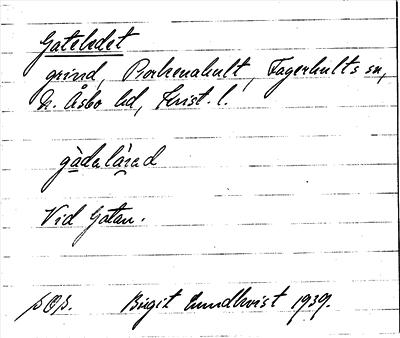 Gateledet
grind, Porkenahult, Fagerhults sn,
N. Åsbo hd, Krist. l.
gàdalàad
Vid Gatan.
Birgit Lundkvist 1939.